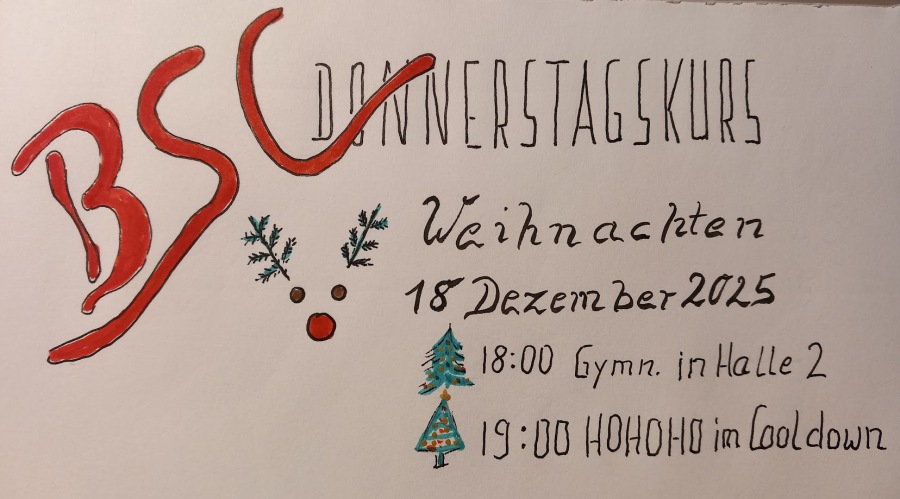 BSC
DONNERSTAGSKURS
Weihnachten
18 Dezember 2025
18:00 Gymn. in Halle 2
19:00 HOHOHO im Cooldown